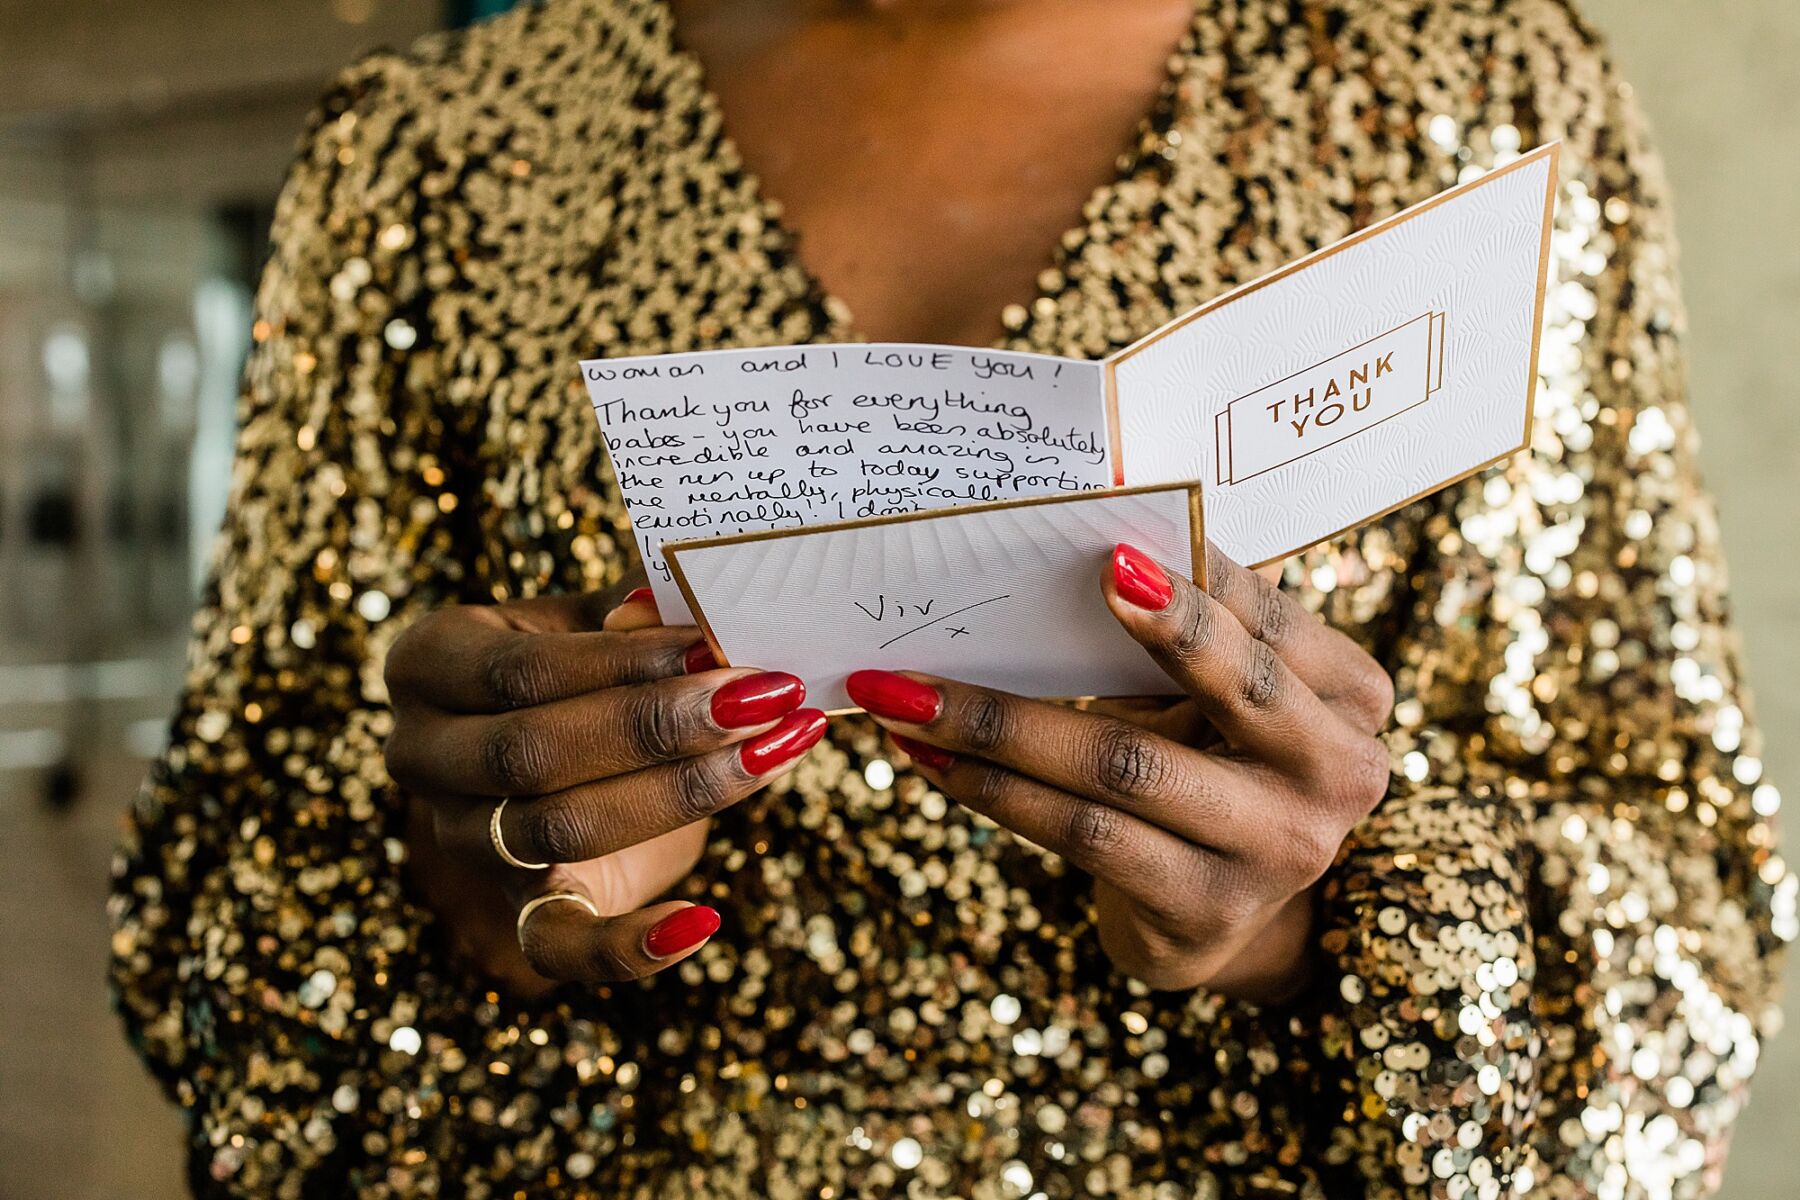 woman and I LOVE you!
Thank you for everything
babes - you have been absolutely
incredible and amazing in
the run up to today supporting
me mentally, physically
emotinally! I dont
I
y
THANK
YOU
Viv
x